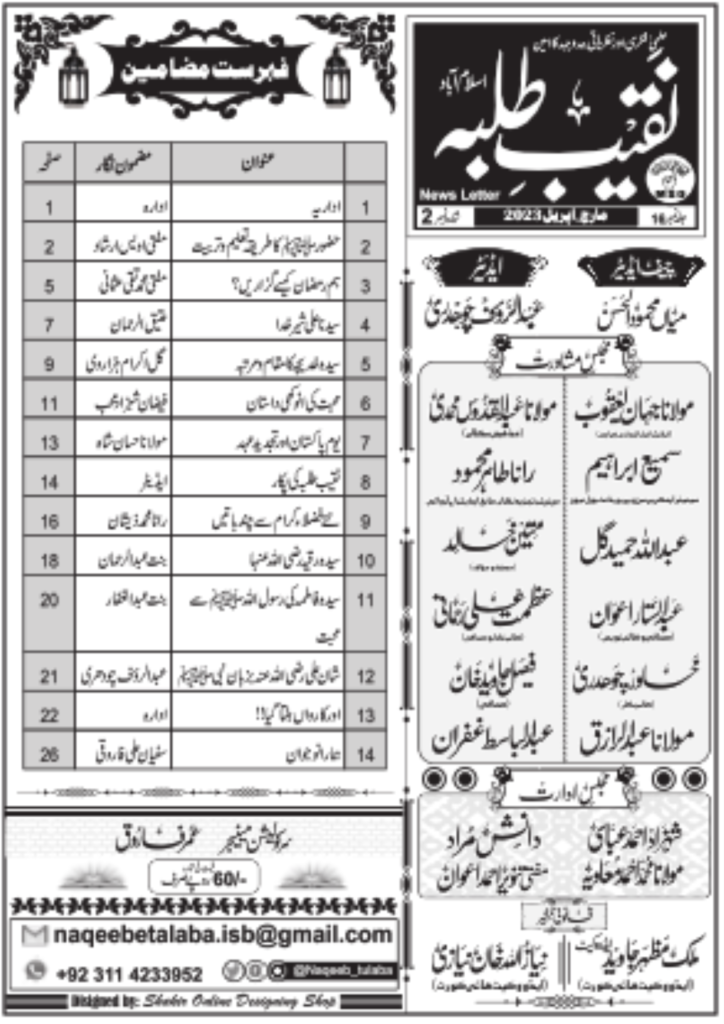 علمی، فکری اور نظریاتی جدوجہد کا امین
نقیبِ طلبہ
اسلام آباد
News Letter
MSO
جلد نمبر 16
مارچ، اپریل 2023
شمارہ نمبر 2
چیف ایڈیٹر
ایڈیٹر
میاں محمود الحسن
عبدالرؤف چوھدری
مجلس مشاورت
مولانا جہان یعقوب
مولانا عبدالقدوس محمدی
سمیع ابراہیم
رانا طاہر محمود
عبداللہ حمید گل
متین خالد
عبدالستار اعوان
عظمت علی رحمانی
خاور چوھدری
فیصل جاوید خان
مولانا عبدالرازق
عبدالباسط غفران
مجلس ادارت
شہزاد احمد عباسی
دانش مراد
مولانا محمد احمد معاویہ
مفتی تنویر احمد اعوان
قانونی مشیر
ملک مظہر جاوید ایڈووکیٹ
(ایڈووکیٹ ھائی کورٹ)
نیاز اللہ خان نیازی
(ایڈووکیٹ ھائی کورٹ)
فہرست مضامین
عنوان مضمون نگار صفحہ
1 اداریہ ادارہ 1
2 حضور ﷺ کا طریقہ تعلیم و تربیت مفتی اویس ارشاد 2
3 ہم رمضان کیسے گزاریں؟ مفتی محمد تقی عثمانی 5
4 سیدنا علی شیر خدا عتیق الرحمان 7
5 سیدہ خدیجہ کا مقام و مرتبہ گل اکرام ہزاروی 9
6 محبت کی انوکھی داستان فیضان شہزاد محب 11
7 یوم پاکستان اور تجدید عہد مولانا حسان شاہ 13
8 نقیب طلبہ کی پکار ایڈیٹر 14
9 نئے فضلاء کرام سے چند باتیں رانا محمد ذیشان 16
10 سیدہ رقیہ رضی اللہ عنہا بنت عبدالرحمان 18
11 سیدہ فاطمہ کی رسول اللہ ﷺ سے بنت عبدالغفار 20
محبت
12 شان علی رضی اللہ عنہ بزبان نبی ﷺ عبدالرؤف چودھری 21
13 اور کارواں بنتا گیا!! ادارہ 22
14 معمار نوجوان سفیان علی فاروقی 26
سرکولیشن مینیجر عمر فاروق
60/- روپے صرف
naqeebetalaba.isb@gmail.com
+92 311 4233952 @Naqeeb_tulaba
Disigned by: Shakir Online Designing Shop